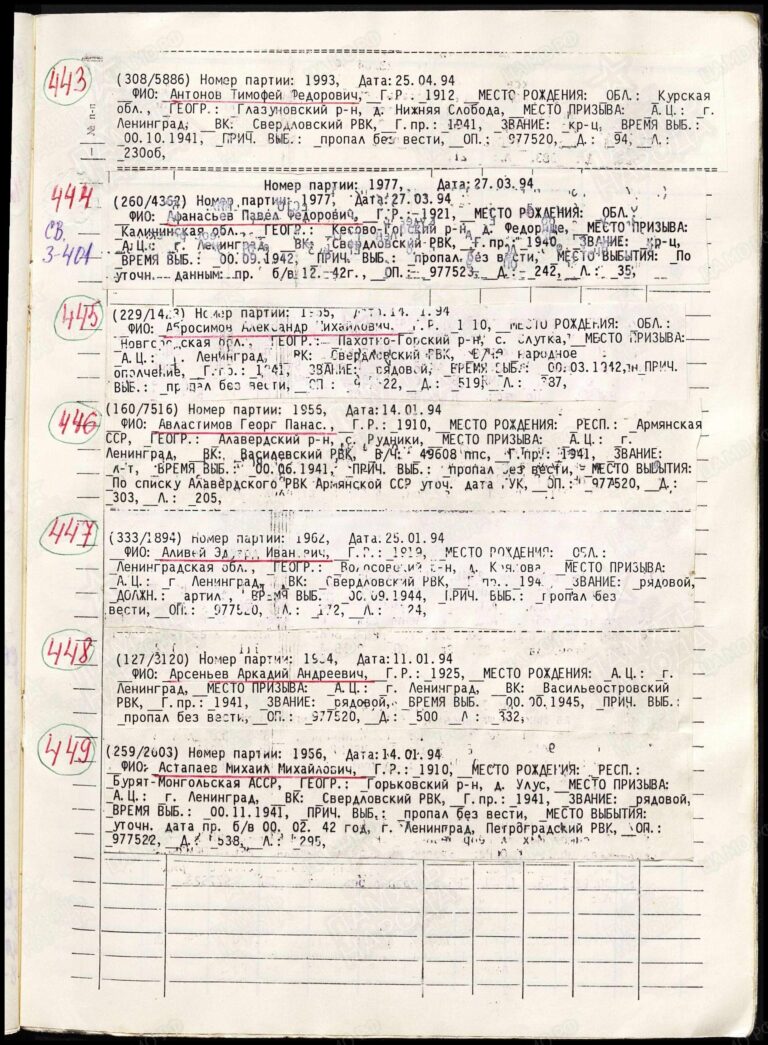 443
(308/5886) Номер партии: 1993, Дата:25.04.94
ФИО: Антонов Тимофей Федорович, Г.Р.: 1912, МЕСТО РОЖДЕНИЯ: ОБЛ.: Курская
обл., ГЕОГР.: Глазуновский р-н, д. Нижняя Слобода, МЕСТО ПРИЗЫВА: А.Ц.: г.
Ленинград, ВК: Свердловский РВК, Г.пр.: 1941, ЗВАНИЕ: кр-ц, ВРЕМЯ ВЫБ.:
00.10.1941, ПРИЧ. ВЫБ.: пропал без вести, ОП.: 977520, Д.: 94, Л.:
230об,
№ п-п
1
444
СВ.
3-401
Номер партии: 1977, Дата:27.03.94
(260/4362) Номер партии: 1977, Дата:27.03.94
ФИО: Афанасьев Павел Федорович, Г.Р.: 1921, МЕСТО РОЖДЕНИЯ: ОБЛ.:
Калининская обл., ГЕОГР.: Кесово-Горский р-н, д. Федорище, МЕСТО ПРИЗЫВА:
А.Ц.: г. Ленинград, ВК: Свердловский РВК, Г.пр.: 1940, ЗВАНИЕ: кр-ц,
ВРЕМЯ ВЫБ.: 00.09.1942, ПРИЧ. ВЫБ.: пропал без вести, МЕСТО ВЫБЫТИЯ: По
уточн. данным: пр. б/в 12. 42г., ОП.: 977523, Д.: 242, Л.: 35,
445
Номер партии:
ФИО: Абросимов Александр Михайлович, Г.Р.: МЕСТО РОЖДЕНИЯ: ОБЛ.:
Новгородская обл., ГЕОГР.: р-н, с. МЕСТО ПРИЗЫВА:
А.Ц.: г. Ленинград, ВК: Свердловский РВК, народное
ополчение, Г.пр.: 1941, ЗВАНИЕ: рядовой, ВРЕМЯ ВЫБ.: 00.03.1942, ПРИЧ.
ВЫБ.: пропал без вести, ОП.: Д.: Л.:
446
(160/7516) Номер партии: 1955, Дата:14.01.94
ФИО: Авластимов Георг Панас., Г.Р.: 1910, МЕСТО РОЖДЕНИЯ: РЕСП.: Армянская
ССР, ГЕОГР.: Алавердский р-н, с. Рудники, МЕСТО ПРИЗЫВА: А.Ц.: г.
Ленинград, ВК: РВК, В/Ч: 49608 ппс, Г.пр.: 1941, ЗВАНИЕ:
л-т, ВРЕМЯ ВЫБ.: 00.06.1941, ПРИЧ. ВЫБ.: пропал без вести, МЕСТО ВЫБЫТИЯ:
По списку Алавердского РВК Армянской ССР уточ. дата УК, ОП.: 977520, Д.:
303, Л.: 205,
447
(333/1894) Номер партии: 1962, Дата:25.01.94
ФИО: Аливей Эдуард Иванович, Г.Р.: 1919, МЕСТО РОЖДЕНИЯ: ОБЛ.:
Ленинградская обл., ГЕОГР.: Волосовский р-н, д. МЕСТО ПРИЗЫВА:
А.Ц.: г. Ленинград, ВК: Свердловский РВК, Г.пр.: ЗВАНИЕ: рядовой,
ДОЛЖН.: артил., ВРЕМЯ ВЫБ.: 00.09.1944, ПРИЧ. ВЫБ.: пропал без
вести, ОП.: 977520, Д.: Л.:
448
(127/3120) Номер партии: Дата:11.01.94
ФИО: Арсеньев Аркадий Андреевич, Г.Р.: 1925, МЕСТО РОЖДЕНИЯ: А.Ц.: г.
Ленинград, МЕСТО ПРИЗЫВА: А.Ц.: г. Ленинград, ВК: Васильеостровский
РВК, Г.пр.: 1941, ЗВАНИЕ: рядовой, ВРЕМЯ ВЫБ.: 00.00.1945, ПРИЧ. ВЫБ.:
пропал без вести, ОП.: 977520, Д.: 500 Л.: 332,
449
(259/2003) Номер партии: 1956, Дата:14.01.94
ФИО: Астапаев Михаил Михайлович, Г.Р.: 1910, МЕСТО РОЖДЕНИЯ: РЕСП.:
Бурят-Монгольская АССР, ГЕОГР.: Горьковский р-н, д. Улус, МЕСТО ПРИЗЫВА:
А.Ц.: г. Ленинград, ВК: Свердловский РВК, Г.пр.: 1941, ЗВАНИЕ: рядовой,
ВРЕМЯ ВЫБ.: 00.11.1941, ПРИЧ. ВЫБ.: пропал без вести, МЕСТО ВЫБЫТИЯ:
уточн. дата пр. б/в 00. 02. 42 год, г. Ленинград, Петроградский РВК, ОП.:
977522, Д.: 538, Л.: 295,